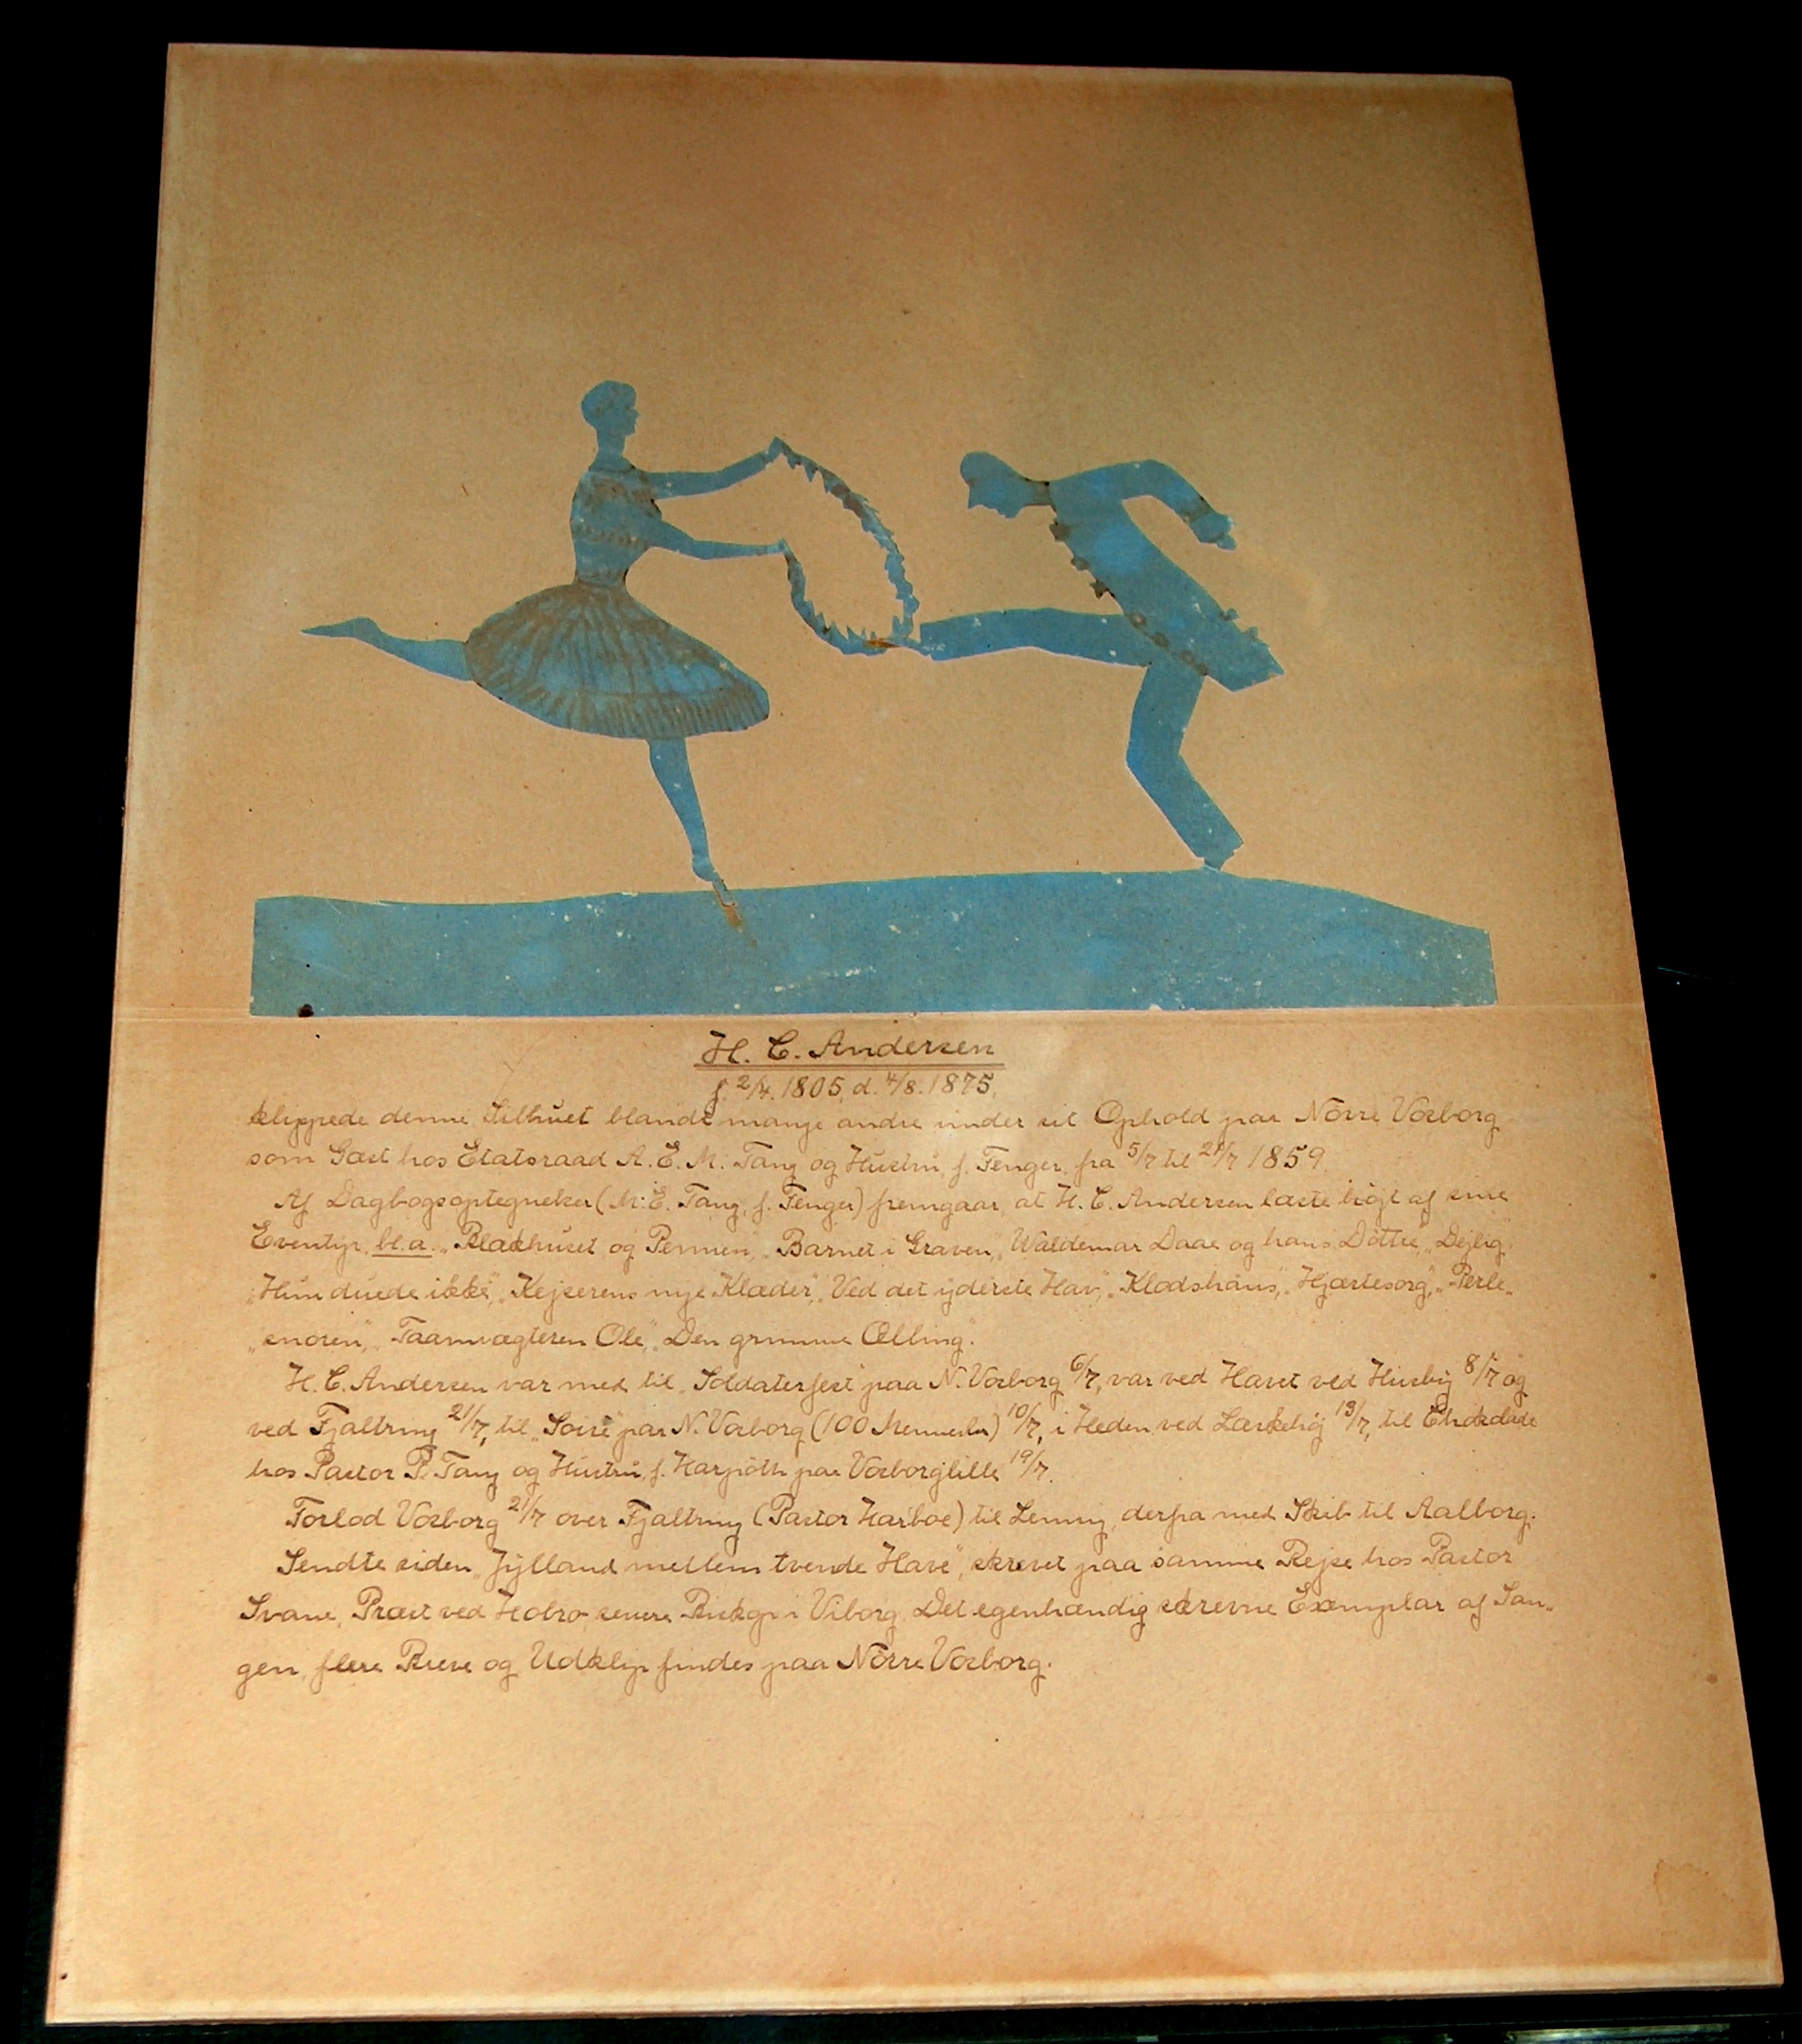 H. C. Andersen
f. 2/4. 1805, d. 4/8. 1875,
klippede denne Silhuet blandt mange andre under sit Ophold paa Nörre Vosborg
som Gæst hos Etatsraad A. E. M. Tang og Hustru, f. Fenger, fra 5/7 til 21/7 1859.
Af Dagbogsoptegnelser (M. E. Tang, f. Fenger) fremgaar, at H. C. Andersen læste højt af sine
Eventyr, bl. a. „Blækhuset og Pennen”, „Barnet i Graven”, „Waldemar Daae og hans Döttre”, „Dejlig”,
„Hun duede ikke”, „Kejserens nye Klæder”, „Ved det yderste Hav”, „Klodshans”, „Hjærtesorg”, „Perle„
„snoren”, „Taarnvægteren Ole”, „Den grimme Ælling”.
H. C. Andersen var med til „Soldaterfest” paa N. Vosborg 6/7, var ved Havet ved Husby 8/7 og
ved Fjaltring 21/7, til „Soiré” paa N. Vosborg (100 Mennesker) 10/7, i Heden ved Lærkehöj 13/7, til
hos Pastor P. Tang og Hustru, f. paa Vosborglille 19/7.
Forlod Vosborg 21/7 over Fjaltring (Pastor Harboe) til Lemvig, derfra med Skib til Aalborg.
Sendte siden „Jylland mellem tvende Have”, skrevet paa samme Rejse hos Pastor
Svane, Præst ved Hobro, senere Biskop i Viborg. Det egenhændig skrevne Exemplar af San„
gen, flere Breve og Udklip findes paa Nörre Vosborg.